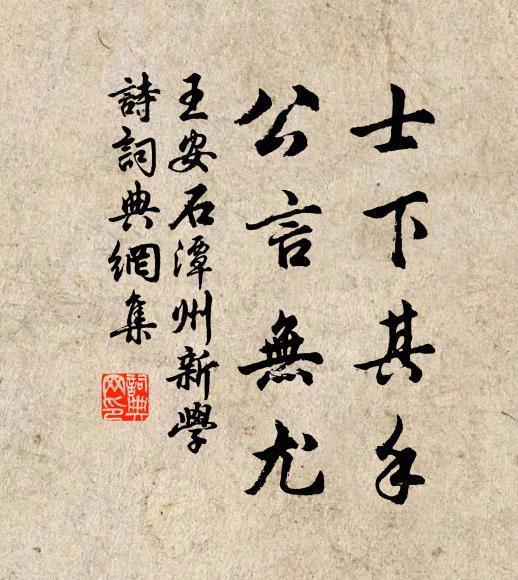 士下其手
公言無尤
王安石潭州新學
詩詞典網集
詞典网印